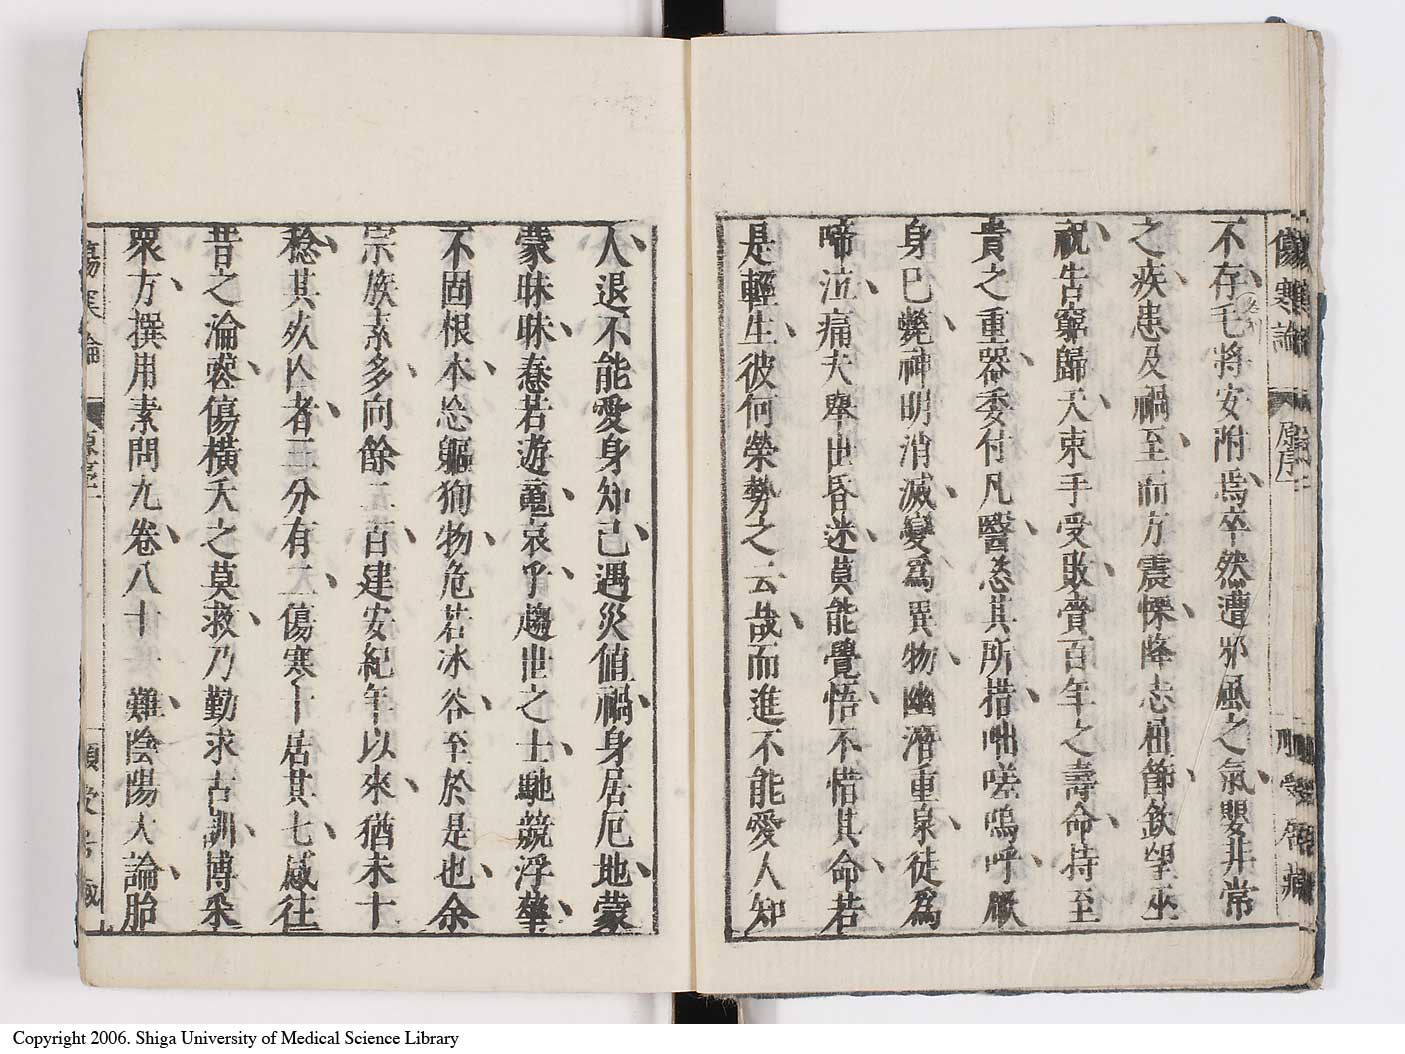 傷寒論 原序 二
不存毛將安附焉卒然遭邪風之氣嬰非常
之疾患及禍至而方震慄降志屈節欽望巫
祝告窮歸天束手受敗賷百年之壽命持至
貴之重器委付凡醫恣其所措咄嗟嗚呼厥
身已斃神明消滅變爲異物幽潛重泉徒爲
啼泣痛夫舉世昏迷莫能覺悟不惜其命若
是輕生彼何榮勢之云哉而進不能愛人知
人退不能愛身知己遇災値禍身居厄地蒙
蒙昧昧惷若遊魂哀乎趨世之士馳競浮華
不固根本忘軀狥物危若冰谷至於是也余
宗族素多向餘二百建安紀年以來猶未十
稔其死亡者三分有二傷寒十居其七感往
昔之淪喪傷橫夭之莫救乃勤求古訓博采
衆方撰用素問九卷八十一難陰陽大論胎
傷寒論 原序 二
Copyright 2006. Shiga University of Medical Science Library